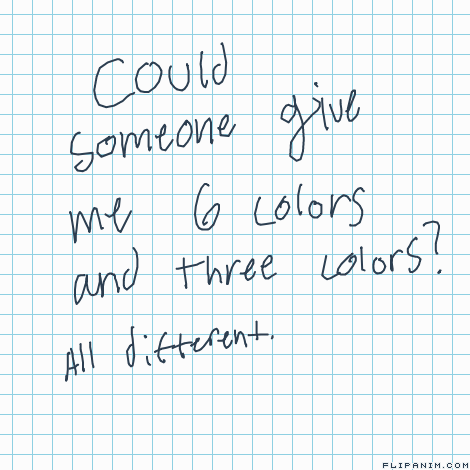 Could
someone give
me 6 colors
and three colors?
All different.
FLIPANIM.COM